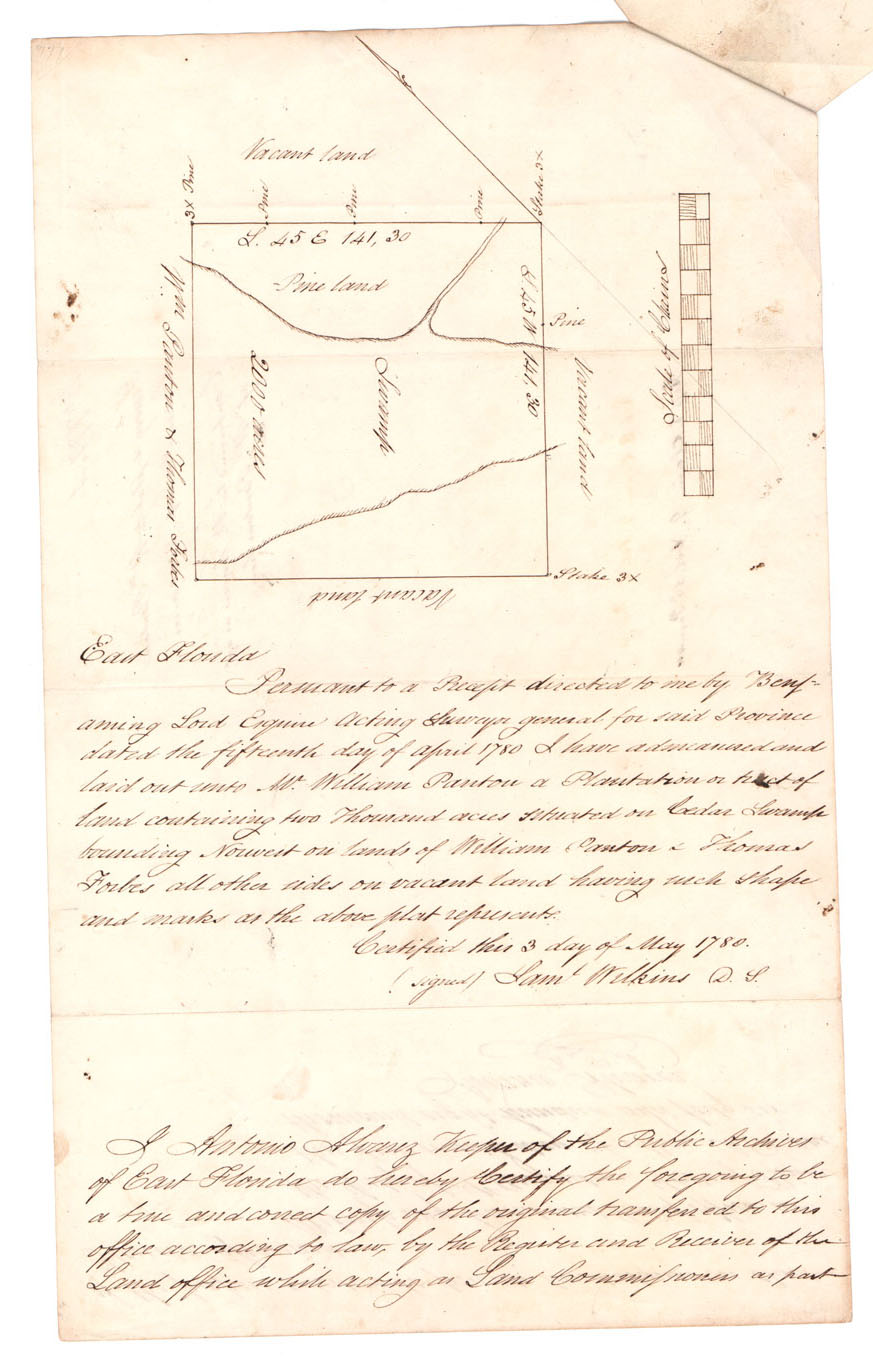 Vacant land
3X Pine
Pine
Pine
Pine
Stake 3X
S. 45 E 141, 30
Pine land
S. 45 W 141. 30
Pine
Wm Panton & Thomas Forbes
2000 acres
Swamp
Vacant land
Scale of Chains
Stake 3X
Vacant land
East Florida
Persuant to a Precept directed to me by Benj-
aming Lord Esquire Acting Surveyor general for said Province
dated the fifteenth day of april 1780 I have admeasured and
laid out unto Mr. William Panton a Plantation or tract of
land containing two Thousand acres situated on Cedar Swamp
bounding Norwest on lands of William Panton & Thomas
Forbes all other sides on vacant land having such shape
and marks as the above plat represents.
Certified this 3 day of May 1780.
(signed) Saml Wilkins D. S.
I Antonio Alvarez Keeper of the Public Archives
of East Florida do hereby Certify the foregoing to be
a true and correct copy of the original transferred to this
office according to law, by the Register and Receiver of the
Land office while acting as Land Commissioners as part